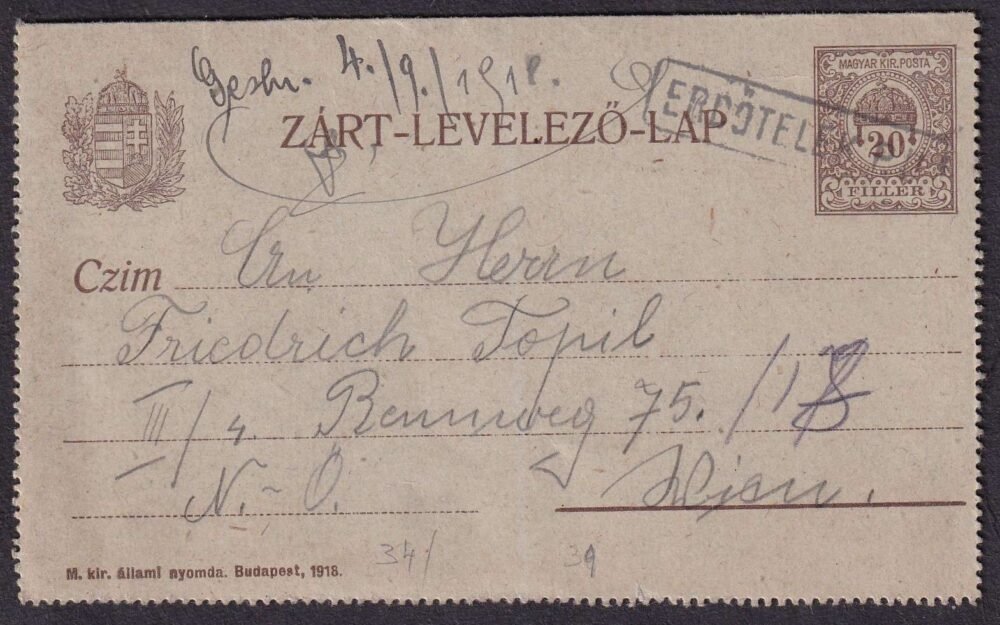 Geshr. 4./9./1918.
MAGYAR KIR. POSTA
ZÁRT-LEVELEZŐ-LAP
ERDŐTELEK
20
FILLER
Czim An Herrn
Friedrich Topil
III/4. Rennweg 75. /18
N.-Ö. Wien.
34/ 39
M. kir. állami nyomda. Budapest, 1918.